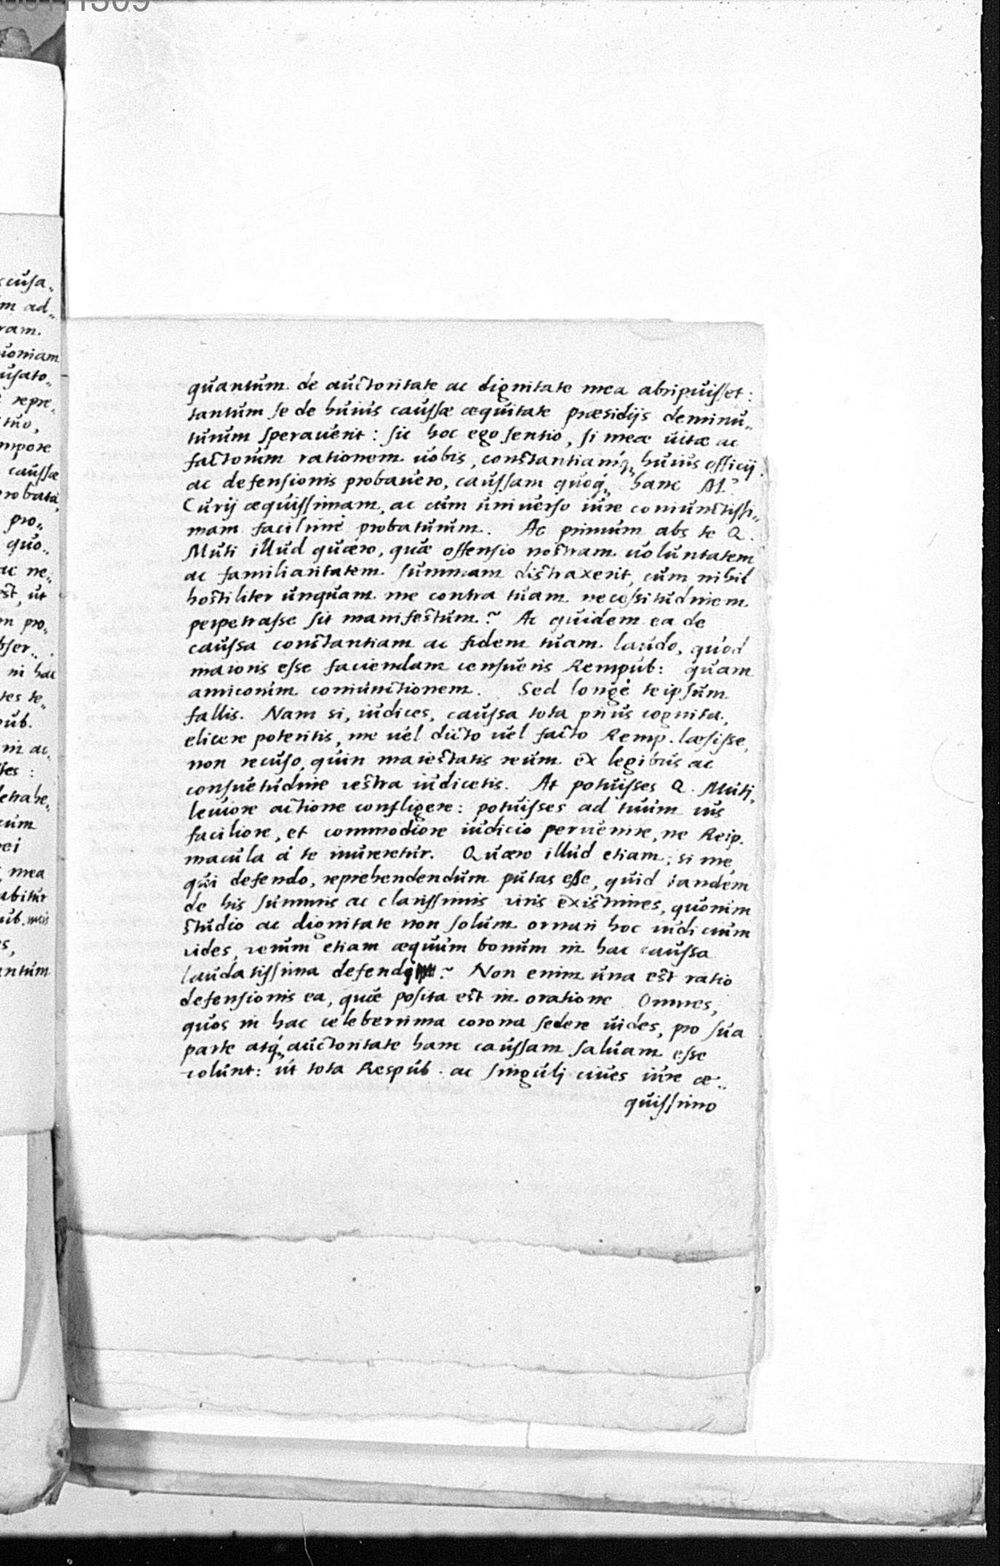 cusa„
m ad„
ram.
uoniam
usato„
repre„
tuo,
mpore
caussæ
probata,
pro„
quo„
ac ne„
est, ut
m pro„
bser„
in hac
tes te„
pub.
in ac„
ses:
detrahe„
cum
ei
, mea
abitur
pub. meis
s,
antum
quantum de auctoritate ac dignitate mea abripuisset:
tantum se de huius caussæ æquitate præsidijs deminu„
turum sperauerit: sic hoc ego sentio, si meæ uitæ ac
factorum rationem uobis, constantiamq́; huius officij
ac defensionis probauero, caussam quoq́; hanc M.
Curij æquissimam, ac cum uniuerso iure coniunctissi„
mam facillimè probaturum. Ac primum abs te Q.
Muti illud quæro, quæ offensio nostram uoluntatem
ac familiaritatem summam distraxerit, cum nihil
hostiliter unquam me contra tuam necessitudinem
perpetrasse sit manifestum? Ac quidem ea de
caussa constantiam ac fidem tuam laudo, quod
maioris esse faciendam censueris Rempub: quam
amicorum coniunctionem. Sed longè teipsum
fallis. Nam si, iudices, caussa tota prius cognita,
elicere poteritis, me uel dicto uel facto Remp. læsisse,
non recuso, quin maiestatis reum ex legibus ac
consuetudine uestra iudicetis. At potuisses Q. Muti,
leuiore actione confligere: potuisses ad tuum ius
faciliore, et commodiore iudicio peruenire, ne Reip.
macula à te inureretur. Quæro illud etiam, si me,
qui defendo, reprehendendum putas esse, quid tandem
de his summis ac clarissimis uiris existimes, quorum
studio ac dignitate non solum ornari hoc iudicium
uides, uerum etiam æquum bonum in hac caussa
laudatissima defendi? Non enim una est ratio
defensionis ea, quæ posita est in oratione. Omnes,
quos in hac celeberrima corona sedere uides, pro sua
parte atq́; auctoritate hanc caussam saluam esse
uolunt: ut tota Respub. ac singulj ciues iure æ„
quissimo